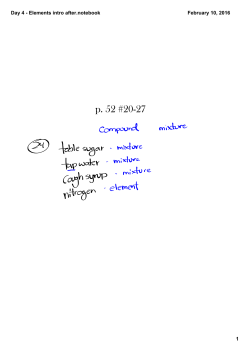 Day 4 - Elements intro after.notebook
February 10, 2016
p. 52 #20-27
Compound mixture
24 table sugar - mixture
tap water - mixture
Cough syrup - mixture
nitrogen - element
1